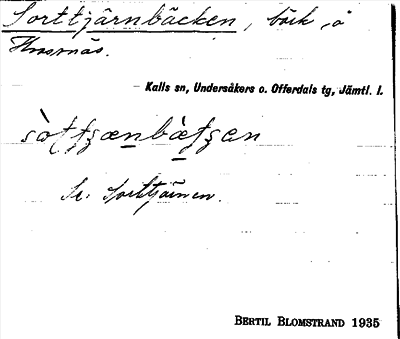 Sorttjärnbäcken, bäck å
Hosmäs.
Kalls sn, Undersåkers o. Offerdals tg, Jämtl. l.
Se. Sorttjärnen.
BERTIL BLOMSTRAND 1935